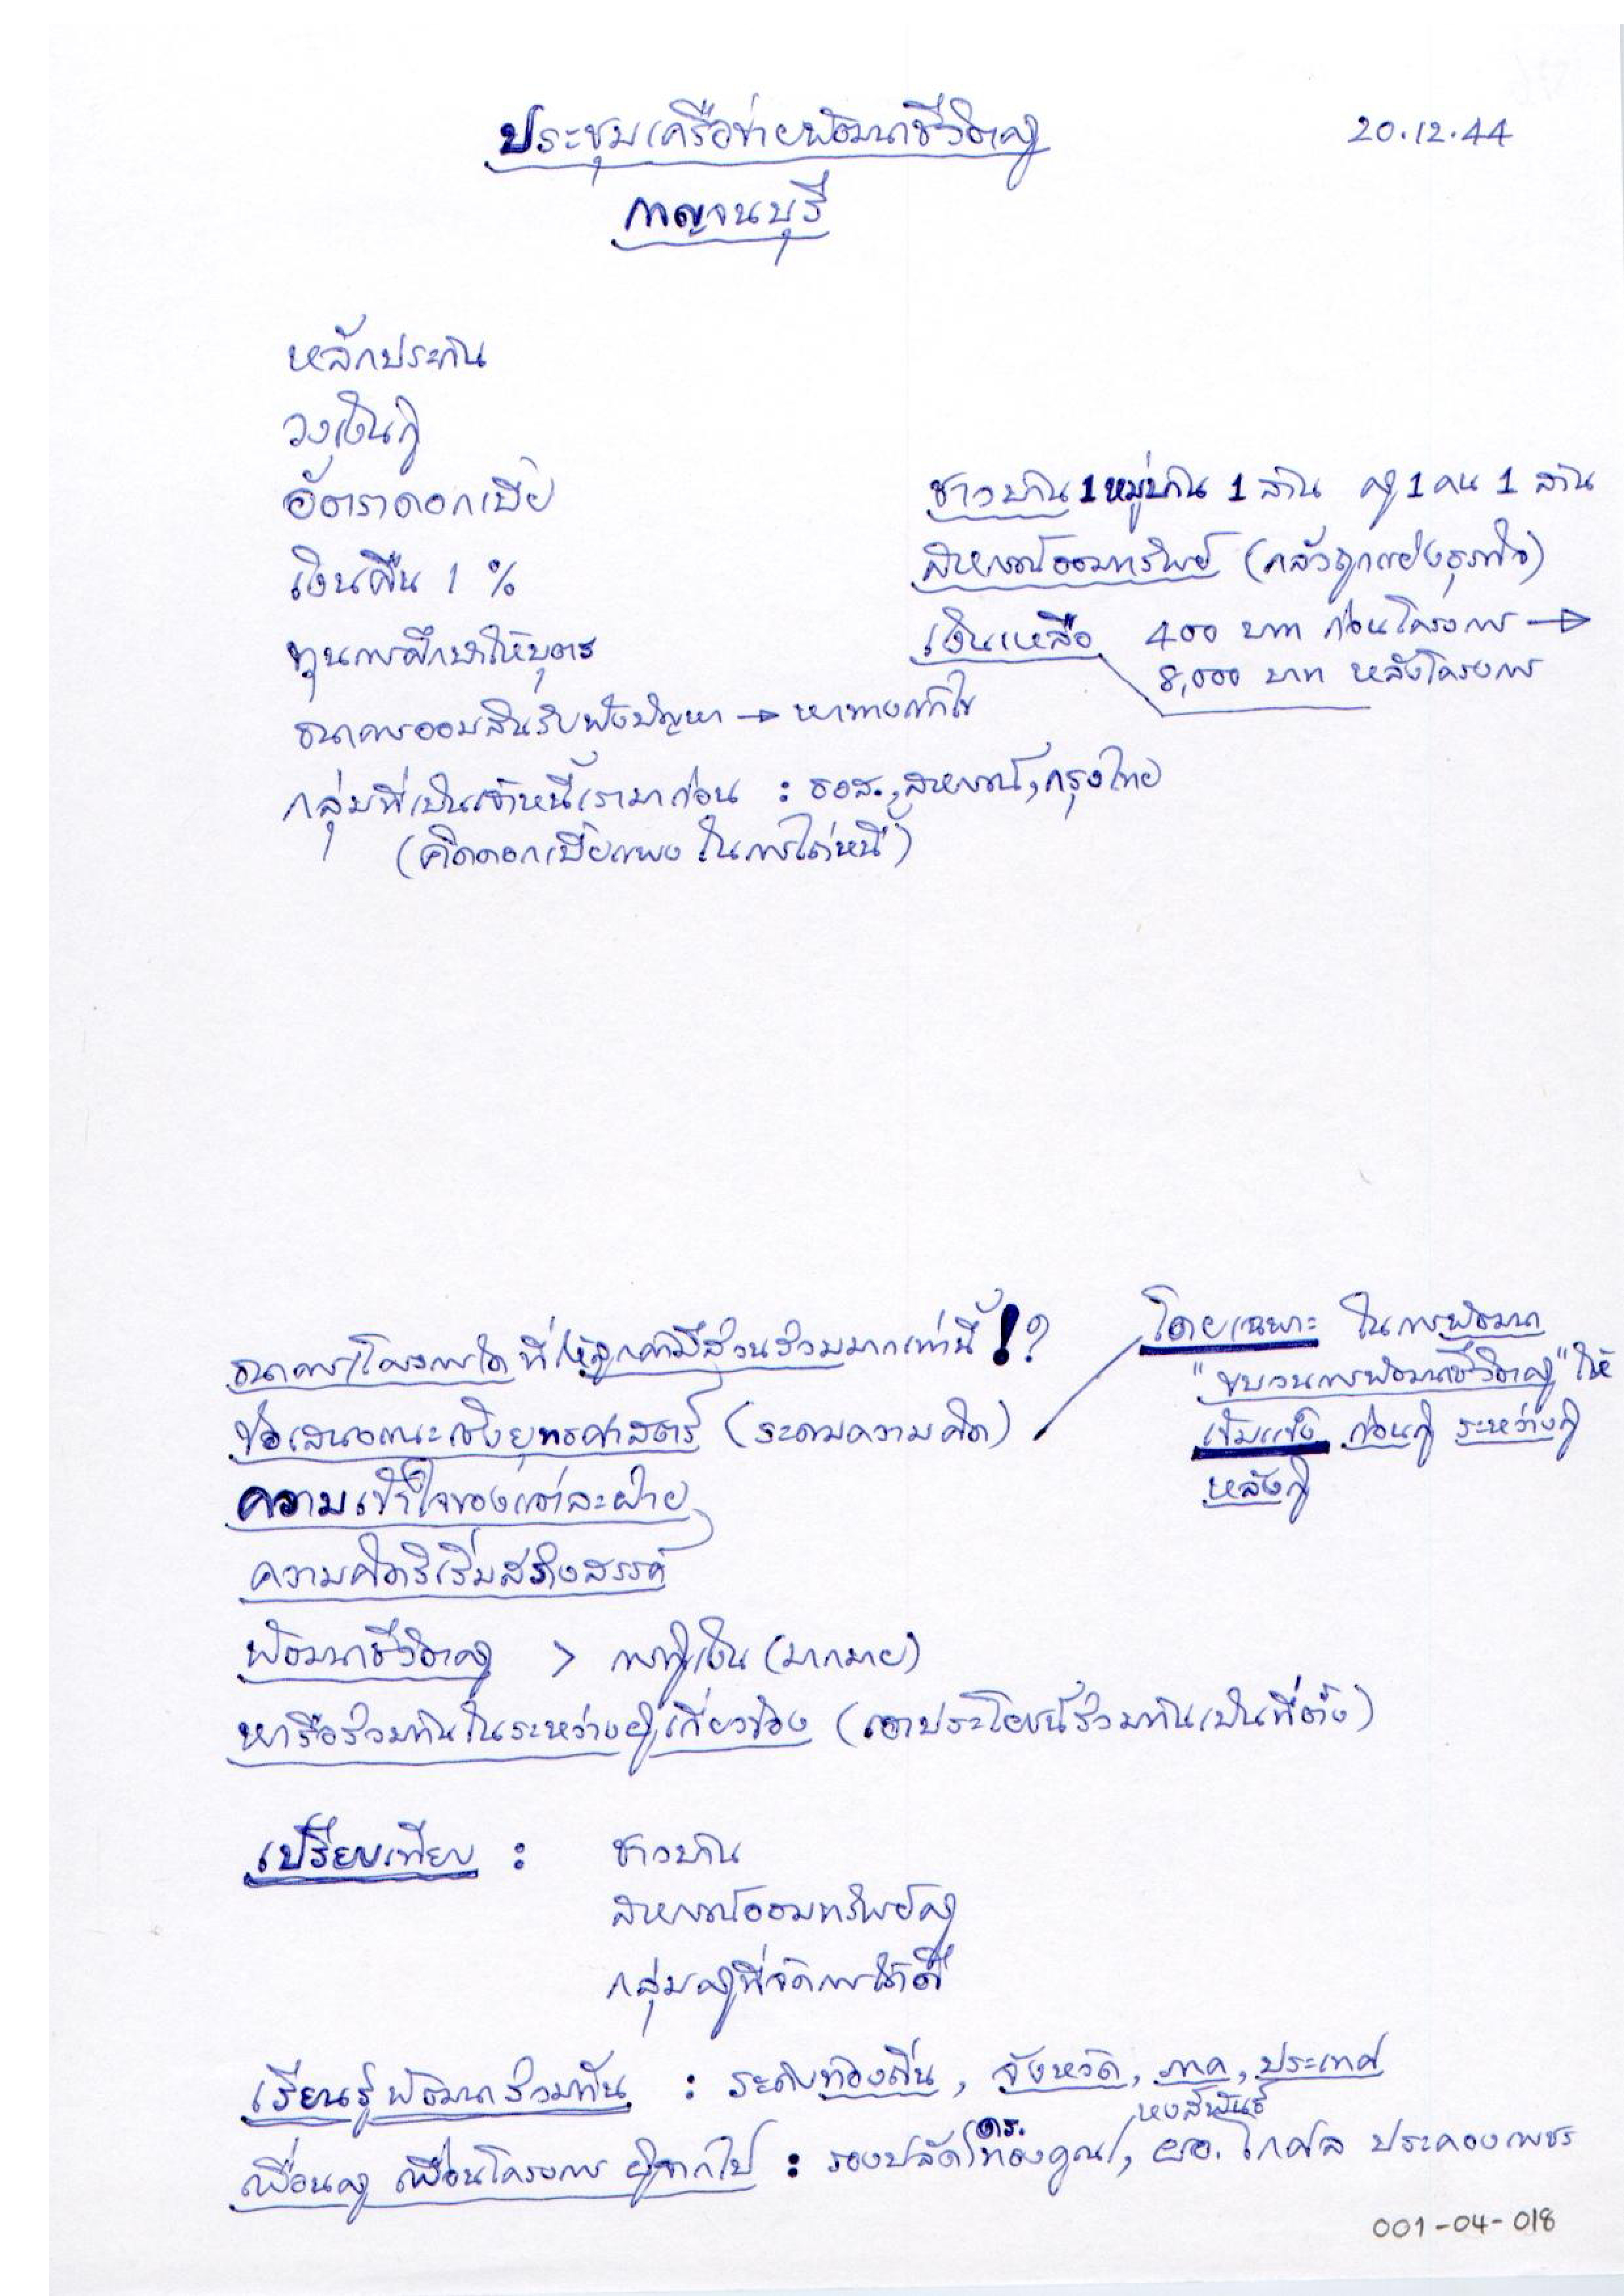 ประชุมเครือข่ายพัฒนาชีวิตครู
20.12.44
กาญจนบุรี
หลักประกัน
วงเงินกู้
อัตราดอกเบี้ย
เงินคืน 1 %
ทุนการศึกษาให้บุตร
ธนาคารออมสินรับฟังปัญหา → หาทางแก้ไข
กลุ่มที่เป็นเจ้าหนี้เรามาก่อน : ธอส., สหกรณ์, กรุงไทย
(คิดดอกเบี้ยแพง ในการไถ่หนี้)
ชาวบ้าน 1 หมู่บ้าน 1 ล้าน ครู 1 คน 1 ล้าน
สหกรณ์ออมทรัพย์ (กลัวถูกแย่งธุรกิจ)
เงินเหลือ 400 บาท ก่อนโครงการ →
8,000 บาท หลังโครงการ
ธนาคาร/โครงการใด ที่ให้ลูกค้ามีส่วนร่วมมากเท่านี้ !?
ข้อเสนอแนะเชิงยุทธศาสตร์ (ระดมความคิด)
ความเข้าใจของแต่ละฝ่าย
ความคิดริเริ่มสร้างสรรค์
พัฒนาชีวิตครู > การกู้เงิน (มากมาย)
หารือร่วมกันในระหว่างผู้เกี่ยวข้อง (เอาประโยชน์ร่วมกันเป็นที่ตั้ง)
โดยเฉพาะ ในการพัฒนา
"ขบวนการพัฒนาชีวิตครู" ให้
เข้มแข็ง ก่อนกู้ ระหว่างกู้
หลังกู้
เปรียบเทียบ : ชาวบ้าน
สหกรณ์ออมทรัพย์ครู
กลุ่มครูที่จัดการได้ดี
เรียนรู้ พัฒนาร่วมกัน : ระดับท้องถิ่น, จังหวัด, ภาค, ประเทศ
เพื่อนครู เพื่อนโครงการ ผู้จากไป : รองปลัด ดร. ทองคูณ หงส์พันธุ์, ผอ. โกศล ประคองเพชร
001-04-018